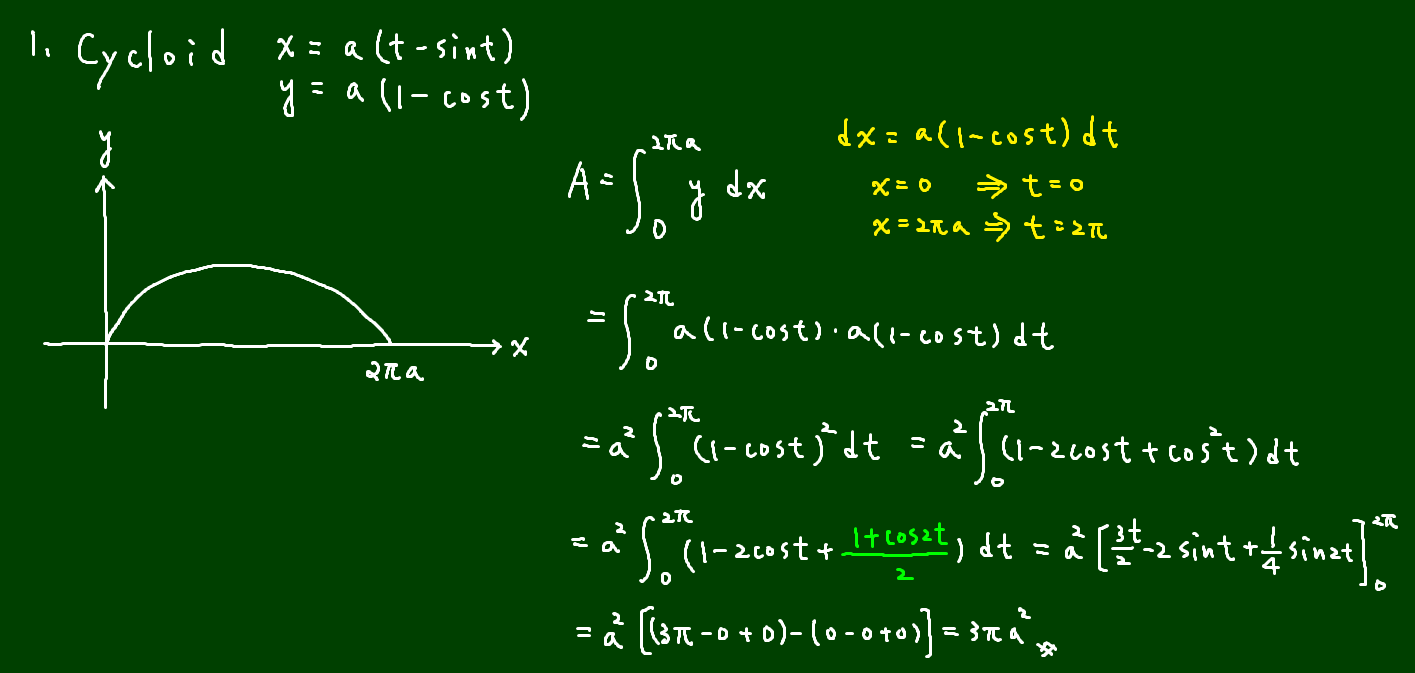 1. Cycloid x = a(t-sint)
y = a(1-cost)
y
x
2πa
A = ∫₀^{2πa} y dx
dx = a(1-cost)dt
x=0 ⇒ t=0
x=2πa ⇒ t=2π
= ∫₀^{2π} a(1-cost)·a(1-cost)dt
= a² ∫₀^{2π} (1-cost)² dt = a² ∫₀^{2π} (1-2cost+cos²t)dt
= a² ∫₀^{2π} (1-2cost+\frac{1+cos2t}{2}) dt = a² [\frac{3t}{2}-2sint+\frac{1}{4}sin2t]₀^{2π}
= a² [(3π-0+0)-(0-0+0)] = 3πa²